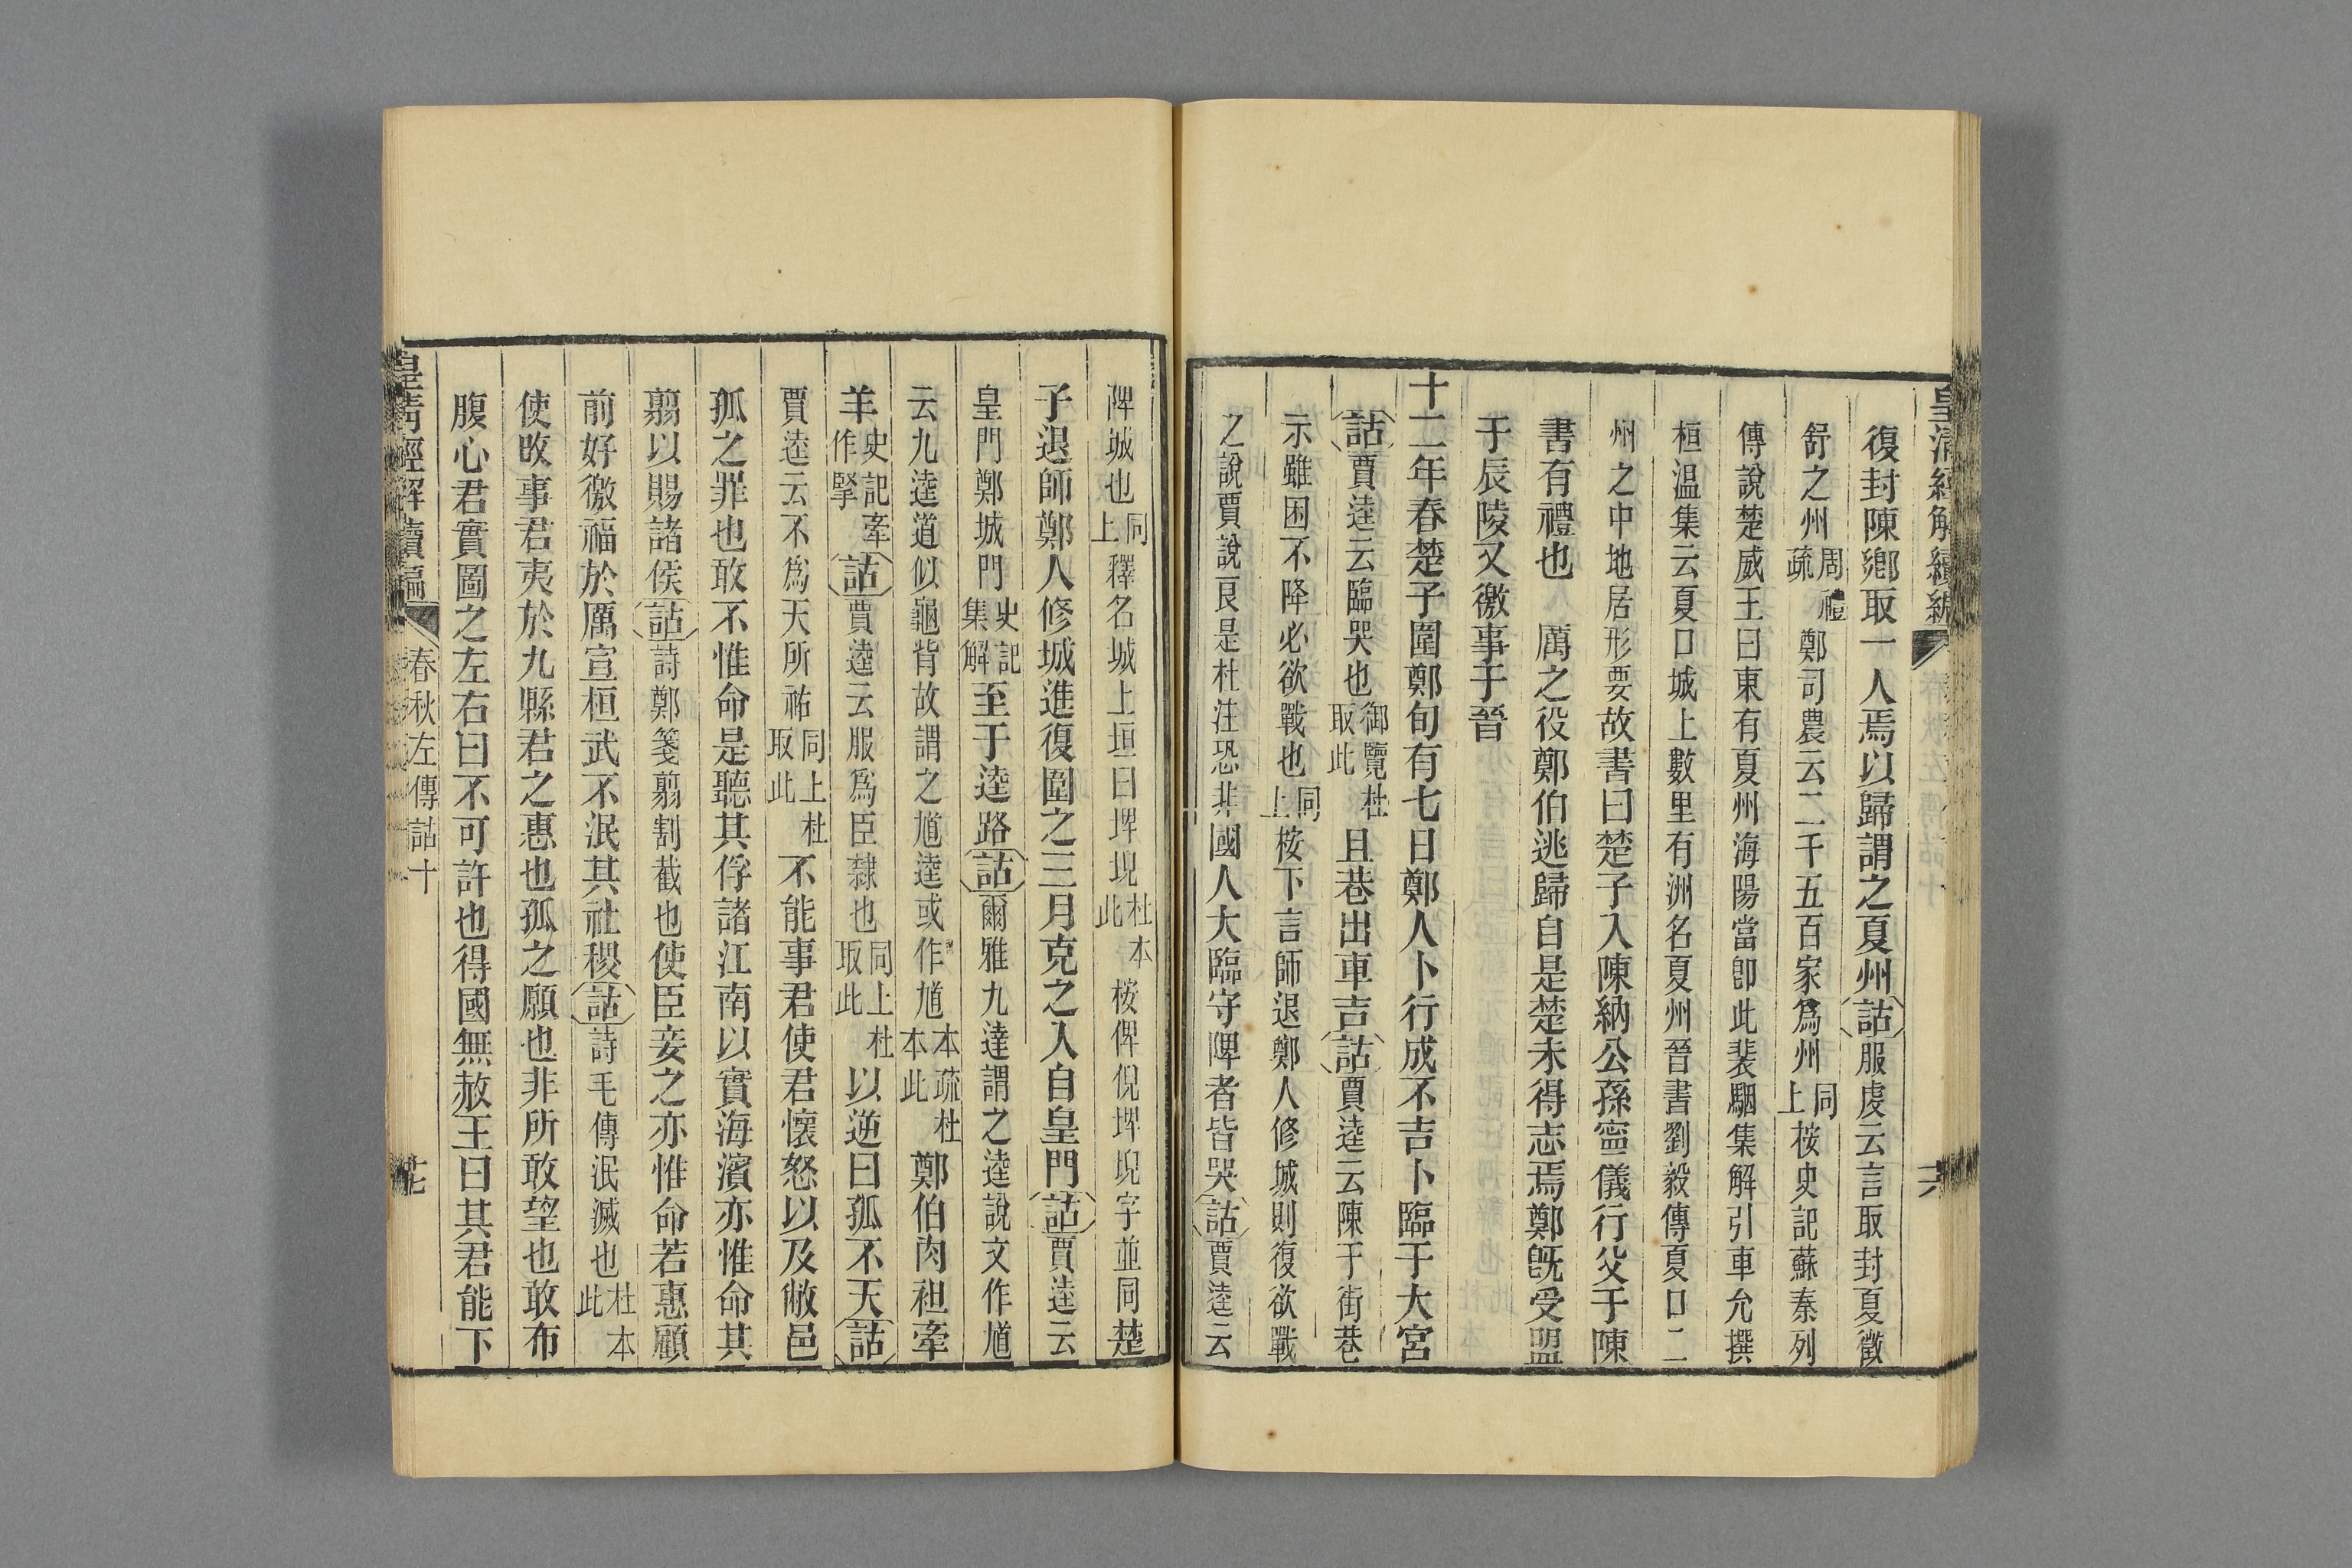 皇清經解續編
復封陳鄉取一人焉以歸謂之夏州詁服虔云言取封夏徵
舒之州周禮疏鄭司農云二千五百家爲州同上桉史記蘇秦列
傳說楚威王曰東有夏州海陽當卽此裴駰集解引車允撰
桓温集云夏口城上數里有洲名夏州晉書劉毅傳夏口二
州之中地居形要故書曰楚子入陳納公孫寧儀行父于陳
書有禮也 厲之役鄭伯逃歸自是楚未得志焉鄭旣受盟
于辰陵又徼事于晉
十二年春楚子圍鄭旬有七日鄭人卜行成不吉卜臨于大宮
詁賈逵云臨哭也御覽杜取此且巷出車吉詁賈逵云陳于街巷
示雖困不降必欲戰也同上桉下言師退鄭人修城則復欲戰
之說賈說良是杜注恐非國人大臨守陴者皆哭詁賈逵云
陴城也同上釋名城上垣曰埤堄杜本此桉俾倪埤堄字並同楚
子退師鄭人修城進復圍之三月克之入自皇門詁賈逵云
皇門鄭城門史記集解至于逵路詁爾雅九達謂之逵說文作馗
云九逵道似龜背故謂之馗逵或作馗本疏杜本此鄭伯肉袒牽
羊史記牽作掔詁賈逵云服爲臣隸也同上杜取此以逆曰孤不天詁
賈逵云不爲天所祐同上杜取此不能事君使君懷怒以及敝邑
孤之罪也敢不惟命是聽其俘諸江南以實海濱亦惟命其
翦以賜諸侯詁詩鄭箋翦割截也使臣妾之亦惟命若惠顧
前好徼福於厲宣桓武不泯其社稷詁詩毛傳泯滅也杜本此
使改事君夷於九縣君之惠也孤之願也非所敢望也敢布
腹心君實圖之左右曰不可許也得國無赦王曰其君能下
皇清經解續編 春秋左傳詁十 十七